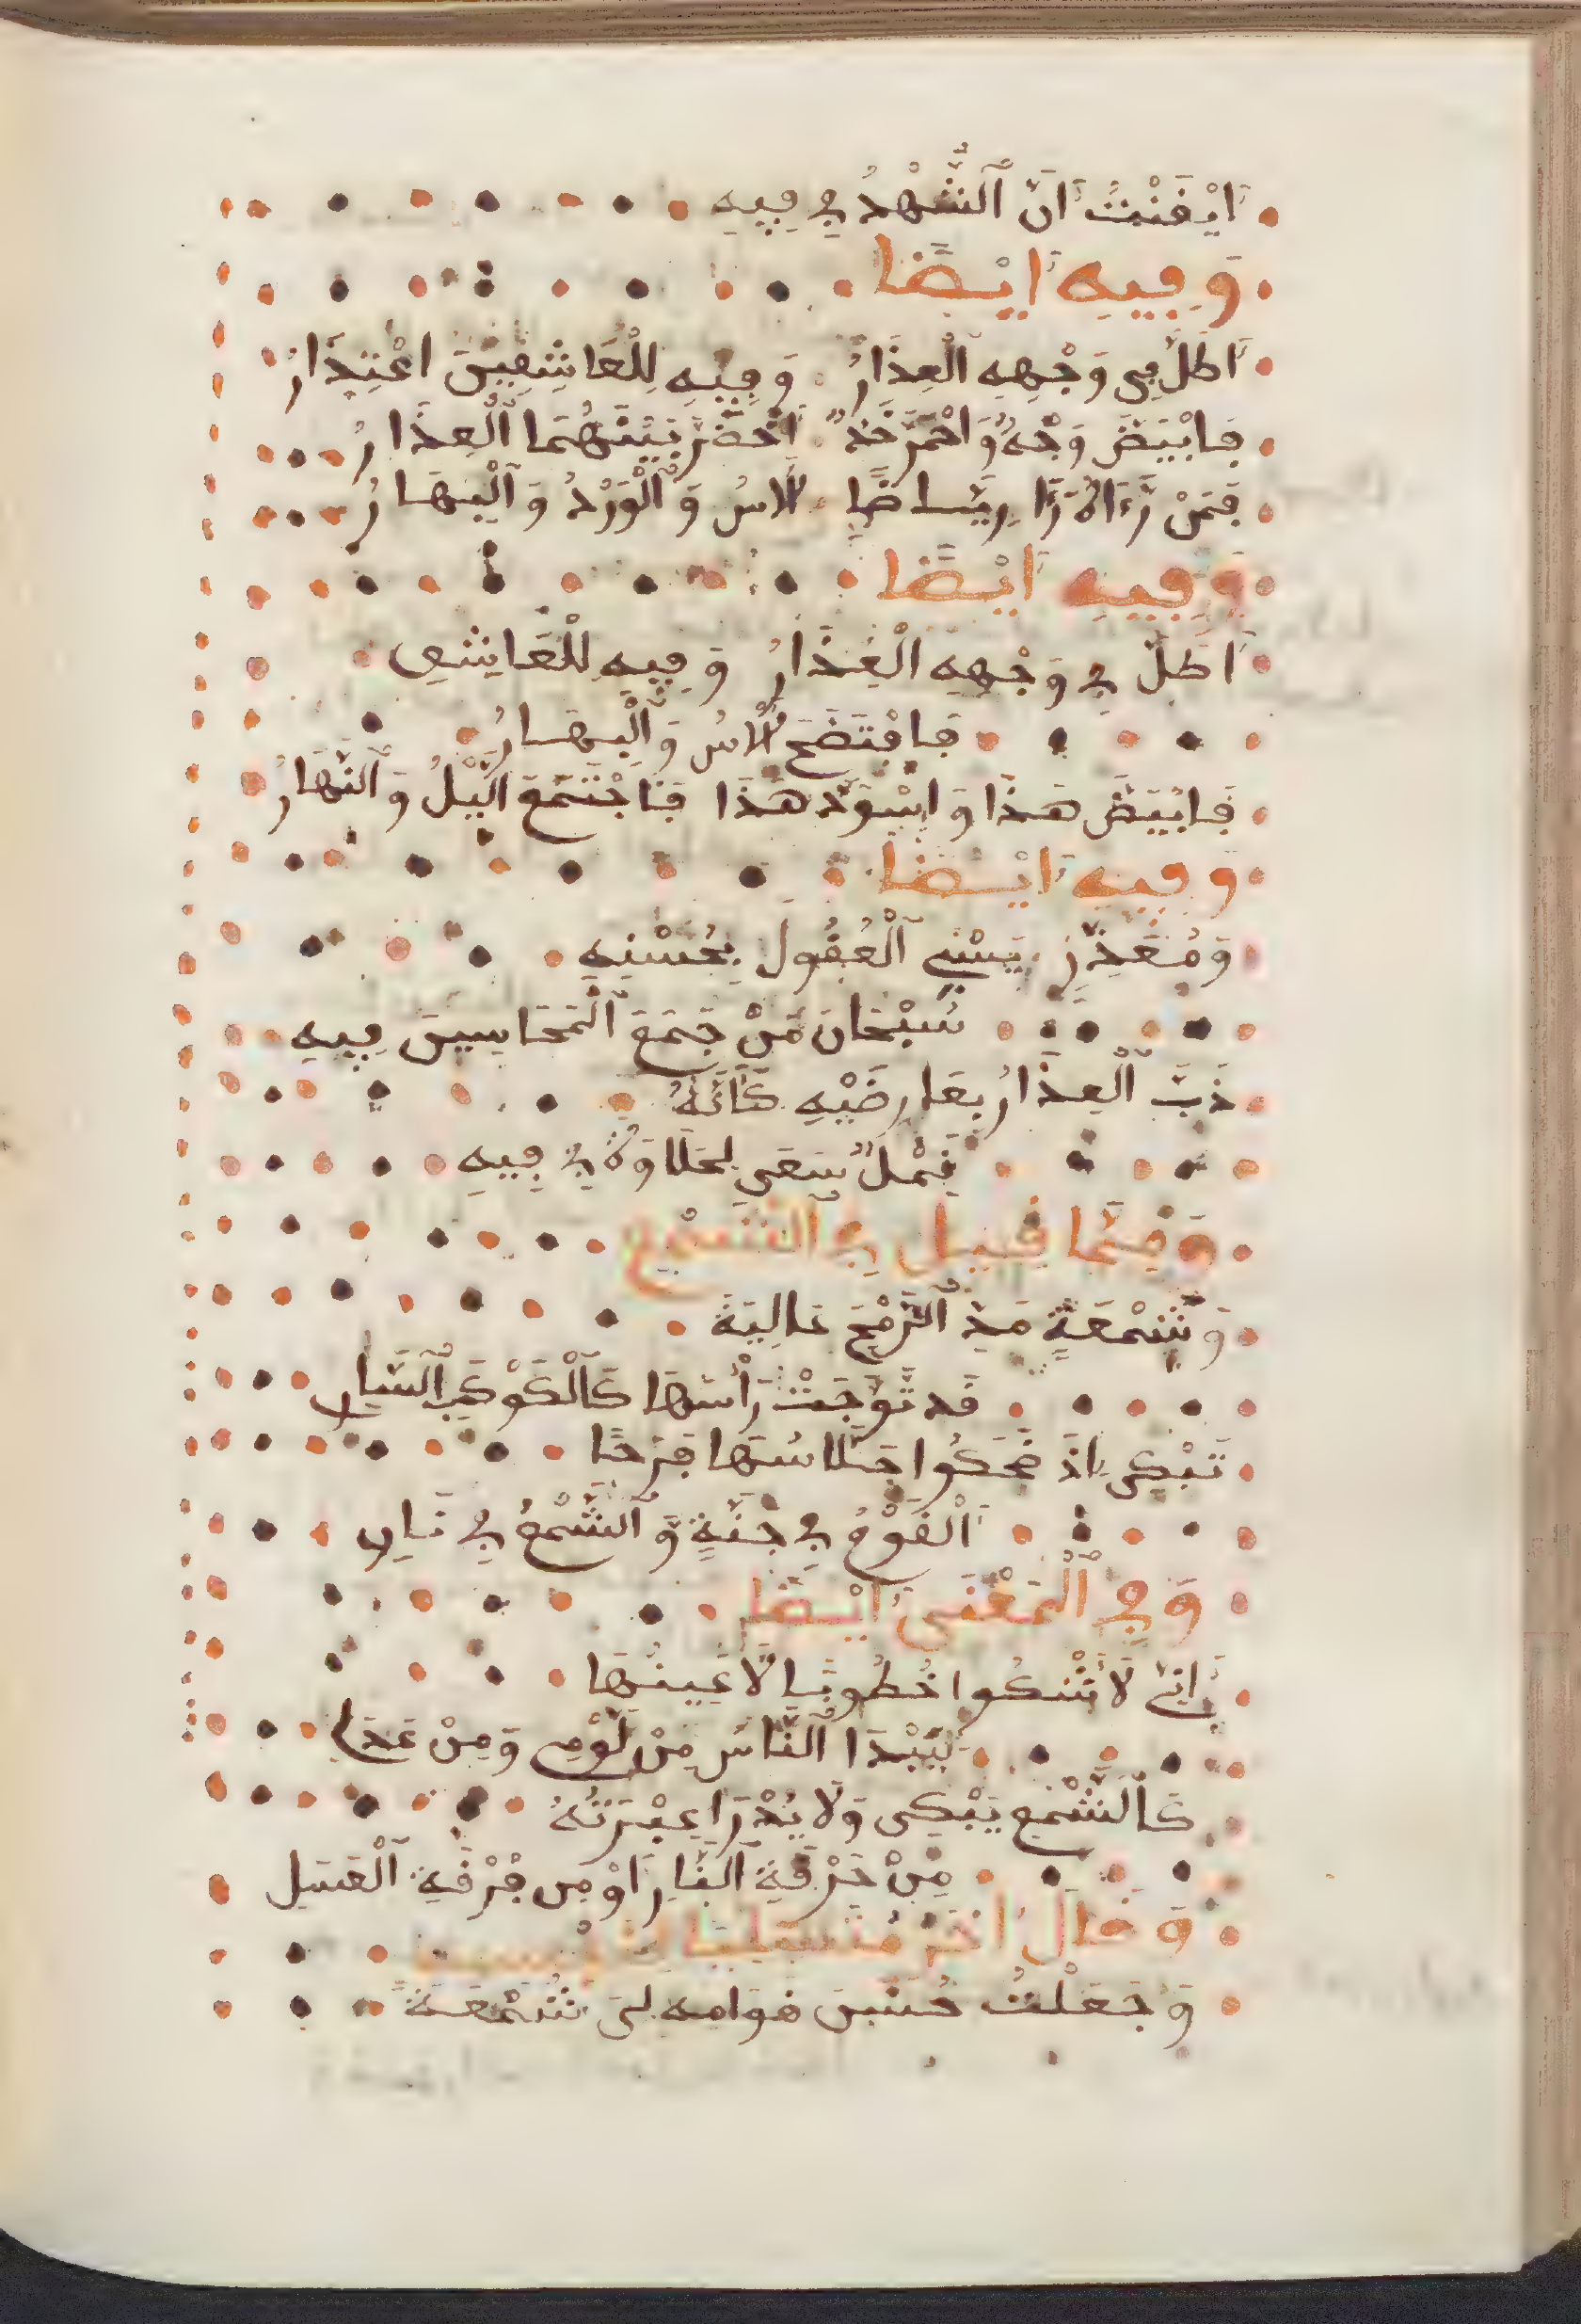 اَيْقَنْتُ اَنَّ اَلشَّهْدُ فِي فِيهِ
وَفِيهِ اَيْضًا
اَطَلَّ فِى وَجْهِهِ الْعِذَارُ وَفِيهِ لِلْعَاشِفِينَ اعْتِذَارُ
فَابْيَضَّ وَجْهٌ وَاحْمَرَّ خَدٌّ اَخْضَرَّ بَيْنَهُمَا اَلْعِذَارُ
فَمَنْ رَءَاهُ رَءَا رِيَاضًا لْاَسُ وَالْوَرْدُ وَالْبَهَارُ
وَفِيهِ اَيْضًا
اَطَلَّ فِي وَجْهِهِ الْعِذَارُ وَفِيهِ لِلْعَاشِقِ
فَافْتَضَحَ لْاَسُ وَالْبَهَارُ
فَابْيَضَّ هَذَا وَاسْوَدَّ هَذَا فَاجْتَمَعَ اَلَّيْلُ وَالنَّهَارُ
وَفِيهِ اَيْضًا
وَمُعَذِّرٍ يَسْبِي اَلْعُقُولَ بِحُسْنِهِ
سُبْحَانَ مَنْ جَمَعَ اَلْمَحَاسِينَ فِيهِ
دَبَّ اَلْعِذَارُ بِعَارِضَيْهِ كَأَنَّهُ
نَمْلٌ سَعَى لِحَلَاوَةٍ فِي فِيهِ
وَمِمَّا قِيلَ فِي اَلشَّمْعِ
وَشَمْعَةٍ مَدِ الرُّمْحَ عَالِيَةً
قَد تَوَّجَتْ رَأْسَهَا كَالْكَوْكَبِ اَلسَّارِ
تَبْكِى اِذَ ضَحَكُوا جَلَّاسُهَا فَرَحًا
اَلْقَوْمُ فِي جَنَّةٍ وَالشَّمْعُ فِي نَارِ
وَفِي اَلْمَعْنَى اَيْضًا
اِنِّي لَاَشْكُوا خُطُوبًا لَا عَيِنُهَا
لِيَبْدَا اَلنَّاسُ مِنْ لَوْمِى وَمِنْ عَذَلِ
كَالشَّمْعِ يَبْكِى وَلَا يُدْرَا عِبْرَتُهُ
مِنْ حَرْفَةِ اَلنَّارِ اَوْ مِن فُرْفَةِ اَلْعَسَلِ
وَقَالَ اَخَرُ
وَجَعَلْتُ حُسْنَ قَوَامِهِ لِى شُمْعَةً